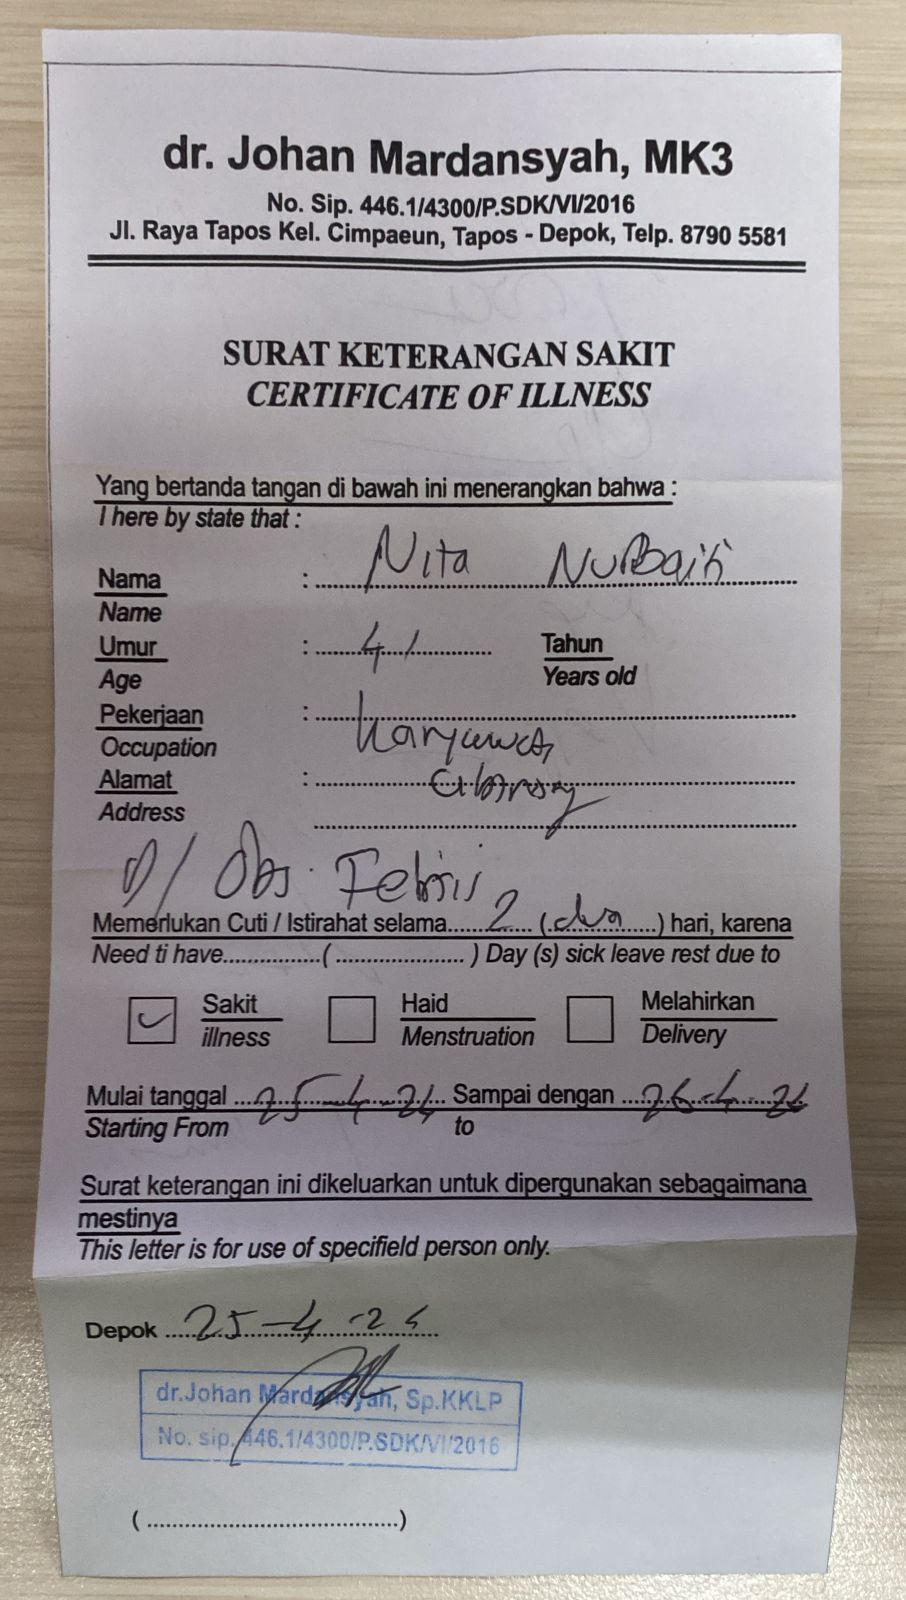 dr. Johan Mardansyah, MK3
No. Sip. 446.1/4300/P.SDK/VI/2016
Jl. Raya Tapos Kel. Cimpaeun, Tapos - Depok, Telp. 8790 5581
SURAT KETERANGAN SAKIT
CERTIFICATE OF ILLNESS
Yang bertanda tangan di bawah ini menerangkan bahwa :
I here by state that :
Nama : Nita Nurbaiti
Name
Umur : 41 Tahun
Age Years old
Pekerjaan :
Occupation
Alamat :
Address
D/ Obs. Febris
Memerlukan Cuti / Istirahat selama......2....(.dua......) hari, karena
Need ti have...............( ..................... ) Day (s) sick leave rest due to
Sakit Haid Melahirkan
illness Menstruation Delivery
Mulai tanggal ... 25-4-24 Sampai dengan ... 26-4-24
Starting From to
Surat keterangan ini dikeluarkan untuk dipergunakan sebagaimana
mestinya
This letter is for use of specifield person only.
Depok ..... 25-4-24
dr.Johan Mardansyah, Sp.KKLP
No. sip. 446.1/4300/P.SDK/VI/2016
( ...................................... )